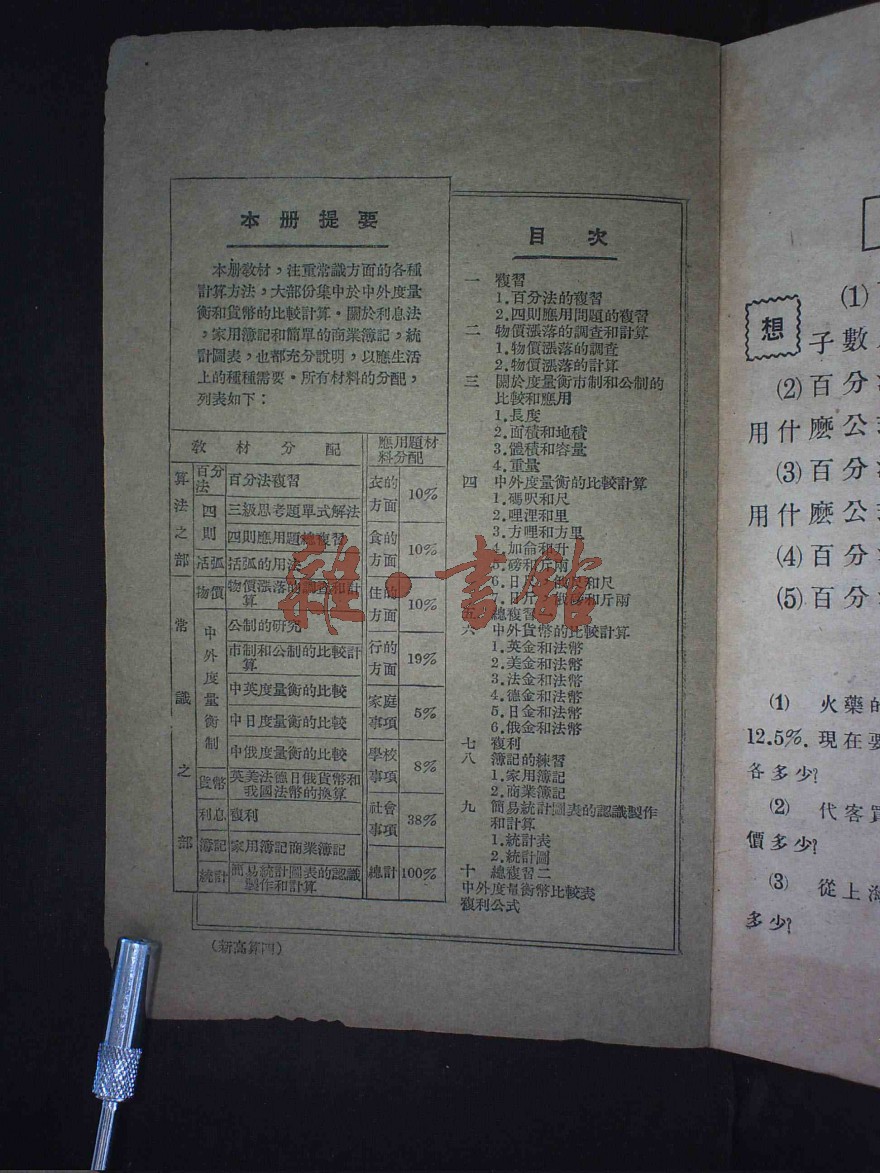 本册提要
本册教材，注重常識方面的各種
計算方法，大部份集中於中外度量
衡和貨幣的比較計算。關於利息法
，家用簿記和簡單的商業簿記，統
計圖表，也都充分說明，以應生活
上的種種需要。所有材料的分配，
列表如下：
教材分配
應用題材
料分配
算法之部
百分
法
百分法複習
四則
三級思考題單式解法
四則應用題總複習
括弧
括弧的用法
常識之部
物價
物價漲落的調查和計
算
中外度量衡制
公制的研究
市制和公制的比較計
算
中英度量衡的比較
中日度量衡的比較
中俄度量衡的比較
貨幣
英美法德日俄貨幣和
我國法幣的換算
利息
複利
簿記
家用簿記商業簿記
統計
簡易統計圖表的認識
製作和計算
衣的
方面
10%
食的
方面
10%
住的
方面
10%
行的
方面
19%
家庭
事項
5%
學校
事項
8%
社會
事項
38%
總計
100%
(新高算四)
目次
一 複習
1.百分法的複習
2.四則應用問題的複習
二 物價漲落的調查和計算
1.物價漲落的調查
2.物價漲落的計算
三 關於度量衡市制和公制的
比較和應用
1.長度
2.面積和地積
3.體積和容量
4.重量
四 中外度量衡的比較計算
1.碼呎和尺
2.哩浬和里
3.方哩和方里
4.加侖和升
5.磅和斤兩
6.日尺、俄尺和尺
7.日斤、俄磅和斤兩
五 總複習一
六 中外貨幣的比較計算
1.英金和法幣
2.美金和法幣
3.法金和法幣
4.德金和法幣
5.日金和法幣
6.俄金和法幣
七 複利
八 簿記的練習
1.家用簿記
2.商業簿記
九 簡易統計圖表的認識製作
和計算
1.統計表
2.統計圖
十 總複習二
中外度量衡幣比較表
複利公式
雜·書館
想
(1)
子數
(2)百分
用什麼公
(3)百分
用什麼公
(4)百分
(5)百分
(1) 火藥的
12.5%.現在要
各多少?
(2) 代客買
價多少?
(3) 從上海
多少?